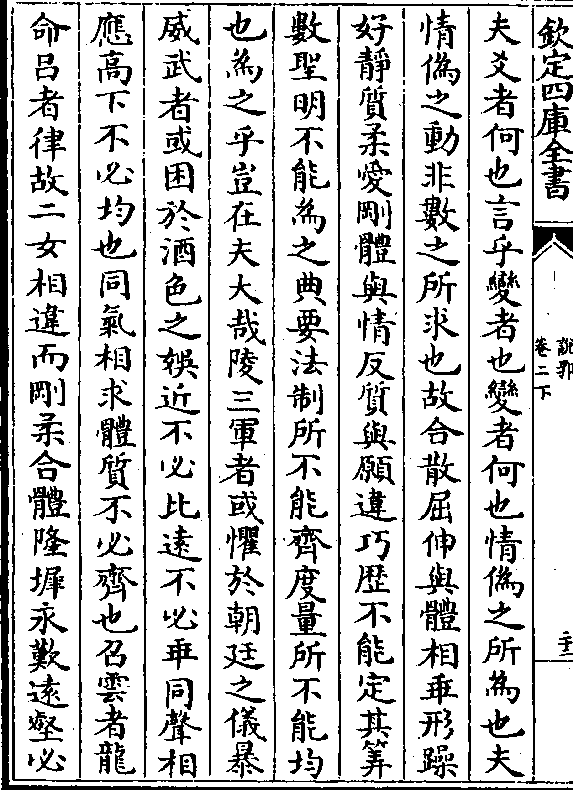 欽定四庫全書
說郛
卷二下
夫爻者何也言乎變者也變者何也情偽之所為也夫
情偽之動非數之所求也故合散屈伸與體相乖形躁
好靜質柔愛剛體與情反質與願違巧歴不能定其筭
數聖明不能為之典要法制所不能齊度量所不能均
也為之乎豈在夫大哉陵三軍者或懼於朝廷之儀暴
威武者或困於酒色之娛近不必比遠不必乖同聲相
應高下不必均也同氣相求體質不必齊也召雲者龍
命呂者律故二女相違而剛柔合體隆墀永歎遠壑必